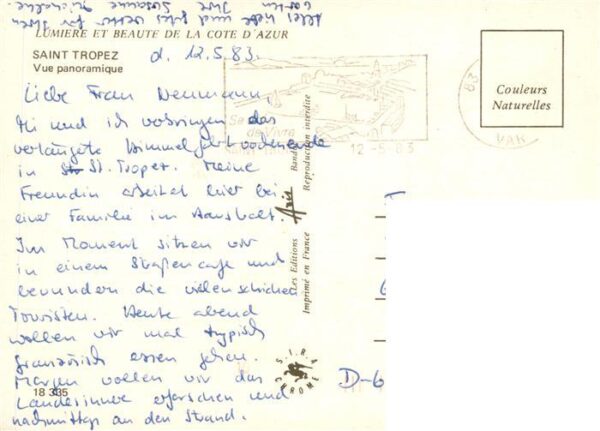 LUMIERE ET BEAUTE DE LA COTE D'AZUR
SAINT TROPEZ
Vue panoramique
d. 12.5.83
Liebe Frau Neumann,
und ich verbringen das
verlängerte Himmelfahrtwochenende
in St. Tropez. Meine
Freundin arbeitet hier bei
einer Familie im Haushalt.
Im Moment sitzen wir
in einem Straßencafe und
bewundern die vielen schicken
Touristen. Heute abend
wollen wir mal typisch
französisch essen gehen.
Morgen wollen wir das
Landesinnere erforschen und
nachmittags an den Strand.
Alles Liebe und gutes Wetter für Ihren
Garten Ihre Susanne
18 335
de Vivre
12-5 83
83
VAR
Couleurs
Naturelles
Les Editions Aris
Imprimé en France
Reproduction interdite
S.I.R.A.
CHROME
D-6